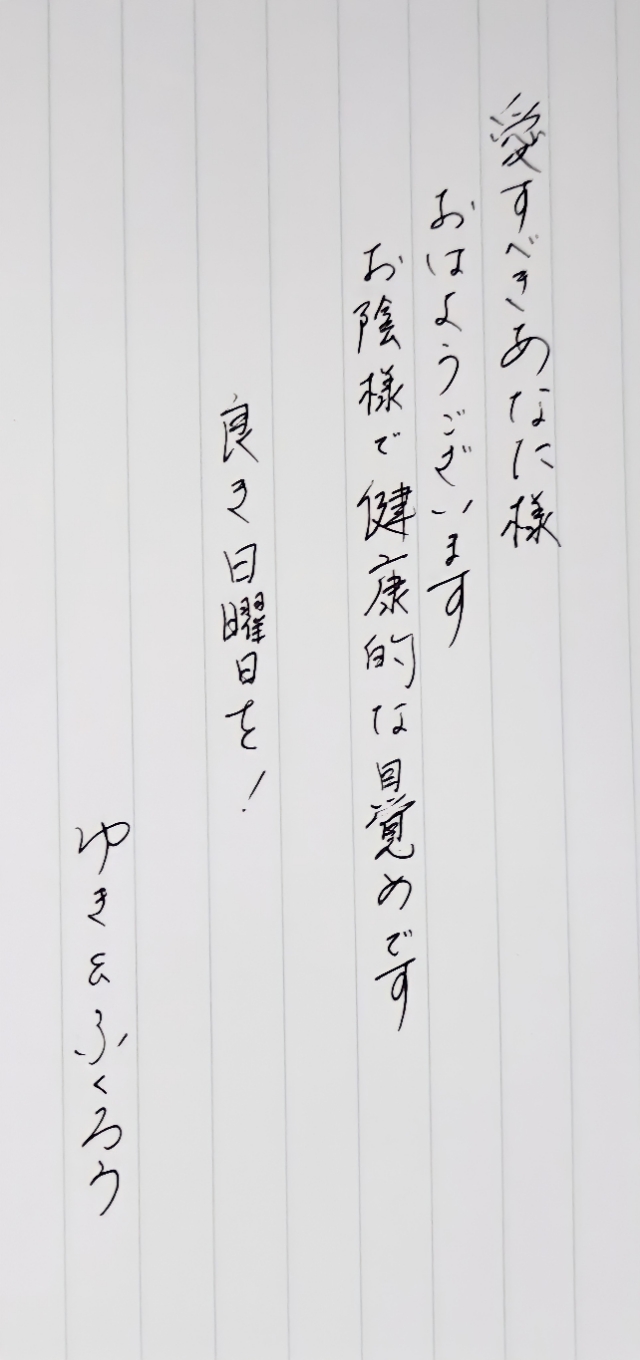 愛すべきあなた様
おはようございます
お陰様で健康的な目覚めです
良き日曜日を!
ゆき&ふくろう